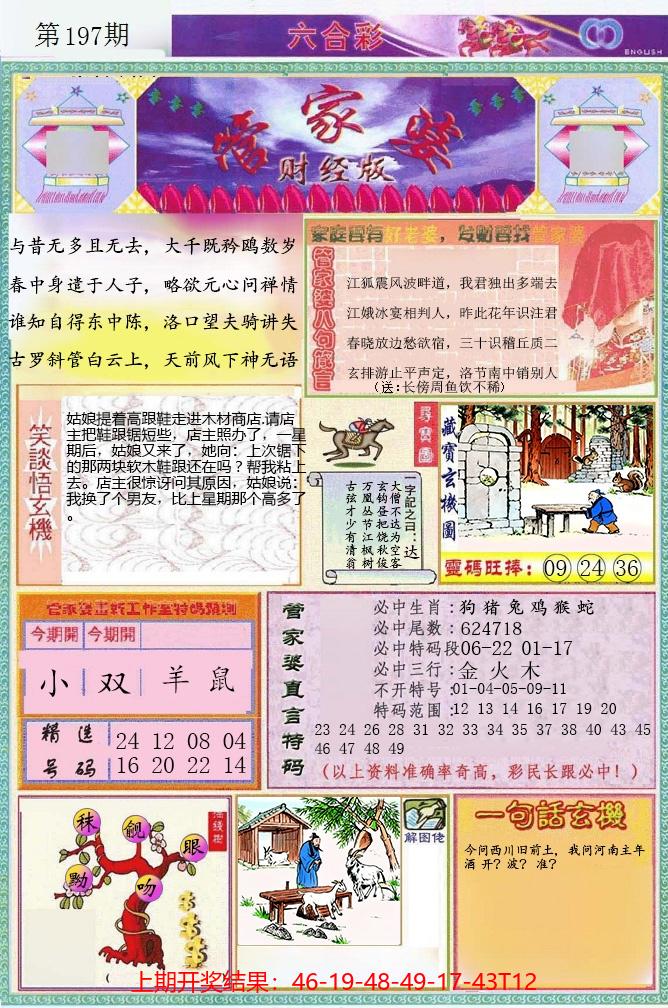 第197期
六合彩
ENGLISH
管家婆
财经版
与昔无多且无去，大千既矜鸥数岁
春中身遣于人子，略欲元心问禅情
谁知自得东中陈，洛口望夫骑讲失
古罗斜管白云上，天前风下神无语
家庭要有好老婆，发财要找管家婆
管家婆八句箴言
江狐震风波畔道，我君独出多端去
江娥冰宴相判人，昨此花年识注君
春晓放边愁欲宿，三十识稽丘质二
玄排游止平声定，洛节南中销别人
（送:长傍周鱼饮不稀）
笑談悟玄機
姑娘提着高跟鞋走进木材商店.请店
主把鞋跟锯短些，店主照办了，一星
期后，姑娘又来了，她向：上次锯下
的那两块软木鞋跟还在吗？帮我粘上
去。店主很惊讶问其原因，姑娘说：
我换了个男友，比上星期那个高多了
。
尋寶圖
一字記之曰：达
大僧不达为空客
玄钩昼把饶秋俊
万凰丛节江枫树
古弦才少有清翁
藏寶玄機圖
靈碼旺捧：09 24 36
管家婆画新工作室特碼預測
今期開 今期開
小 双 羊 鼠
精选号码
24 12 08 04
16 20 22 14
管家婆直言特码
必中生肖：狗 猪 兔 鸡 猴 蛇
必中尾数：624718
必中特码段06-22 01-17
必中三行：金 火 木
不开特号：01-04-05-09-11
特码范围：12 13 14 16 17 19 20
23 24 26 28 31 32 33 34 35 37 38 40 43 45
46 47 48 49
（以上资料准确率奇高，彩民长跟必中！）
秣
觎
眼
黝
吻
搖錢樹
解图佬
一句話玄機
今问西川旧前土，我问河南主年
酒 开？波？ 准？
上期开奖结果：46-19-48-49-17-43T12